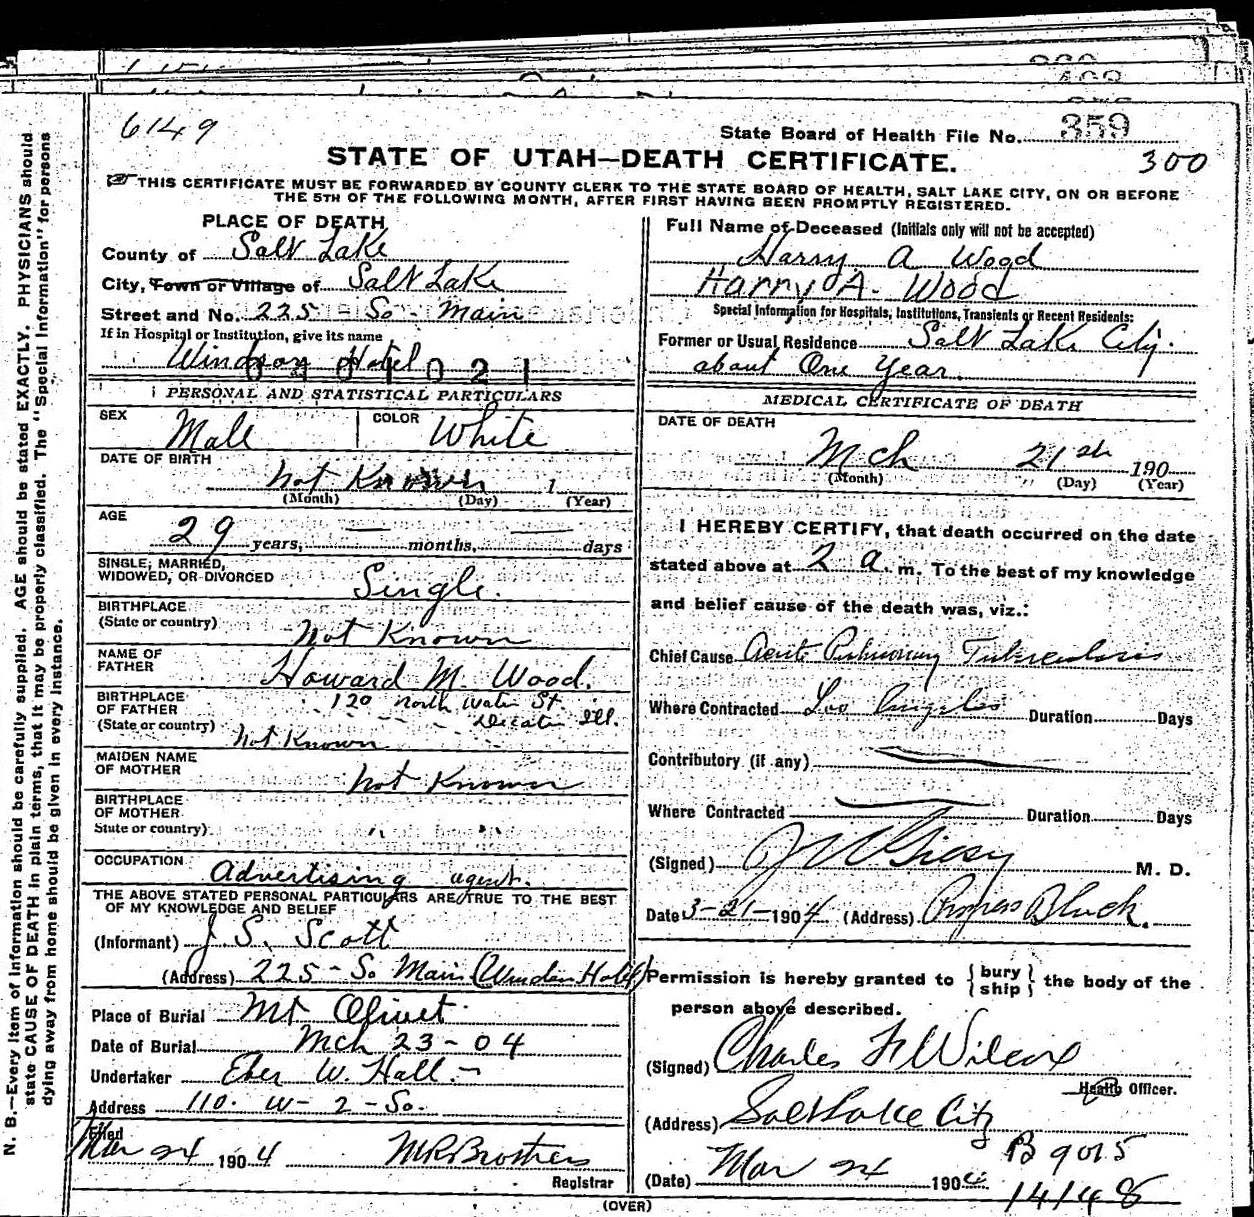 6149
State Board of Health File No. 359
STATE OF UTAH—DEATH CERTIFICATE.
300
THIS CERTIFICATE MUST BE FORWARDED BY COUNTY CLERK TO THE STATE BOARD OF HEALTH, SALT LAKE CITY, ON OR BEFORE
THE 5TH OF THE FOLLOWING MONTH, AFTER FIRST HAVING BEEN PROMPTLY REGISTERED.
PLACE OF DEATH
County of Salt Lake
City, Town or Village of Salt Lake
Street and No. 225 So. Main
If in Hospital or Institution, give its name
Windsor Hotel
0401021
PERSONAL AND STATISTICAL PARTICULARS
SEX Male COLOR White
DATE OF BIRTH
not Known 1
(Month) (Day) (Year)
AGE
29 years, — months, — days
SINGLE, MARRIED,
WIDOWED, OR DIVORCED Single.
BIRTHPLACE
(State or country) not Known
NAME OF
FATHER Howard M. Wood.
BIRTHPLACE 120 North Water St.
OF FATHER Decatur Ill.
(State or country) not Known
MAIDEN NAME
OF MOTHER not Known
BIRTHPLACE
OF MOTHER
State or country)
OCCUPATION
Advertising agent.
THE ABOVE STATED PERSONAL PARTICULARS ARE TRUE TO THE BEST
OF MY KNOWLEDGE AND BELIEF
(Informant) J. S. Scott
(Address) 225 - So Main (Windsor Hotel)
Place of Burial Mt Olivet.
Date of Burial Mch 23-04
Undertaker Eber W. Hall.
Address 110. W- 2-So.
Filed
Mar 24 1904 Brothers
Registrar
Full Name of Deceased (Initials only will not be accepted)
Harry A Wood
Harry A. Wood
Special Information for Hospitals, Institutions, Transients or Recent Residents:
Former or Usual Residence Salt Lake City.
about One Year.
MEDICAL CERTIFICATE OF DEATH
DATE OF DEATH
Mch 21st 190
(Month) (Day) (Year)
I HEREBY CERTIFY, that death occurred on the date
stated above at 2 a. m. To the best of my knowledge
and belief cause of the death was, viz.:
Chief Cause Acute Pulmonary Tuberculosis
Where Contracted Los Angeles Duration Days
Contributory (if any)
Where Contracted Duration Days
(Signed) M. D.
Date 3-21-1904 (Address) Progress Block.
Permission is hereby granted to {bury
ship} the body of the
person above described.
(Signed) Charles F Wilcox
Health Officer.
(Address) Salt Lake City
B 9015
(Date) Mar 24 1904.
14148
(OVER)
N. B.—Every item of information should be carefully supplied. AGE should be stated EXACTLY. PHYSICIANS should
state CAUSE OF DEATH in plain terms, that it may be properly classified. The "Special Information" for persons
dying away from home should be given in every instance.